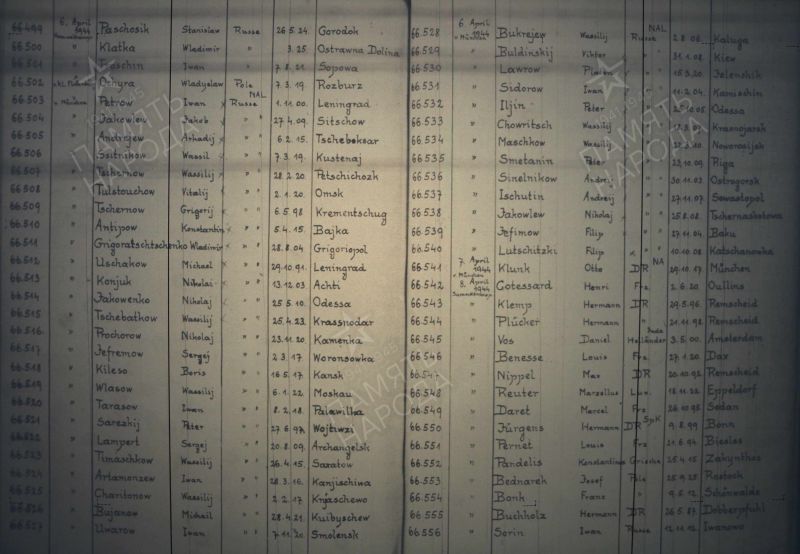 66.499 6. April 1944 Paschosik Stanislaw Russe 26 5. 24. Gorodok
66.500 " Klatka Wladimir " 3.25 Ostrawna Dolina
66.501 " Iwan " 7. 8. 21. Sopowa
66.502 Ochyra Wladyslaw Pole 7. 3. 19. Rozburz
66.503 v. München Petrow Iwan NAL Russe 1. 11. 00. Leningrad
66.504 " Jakowlew Jakob " " 27. 4. 09. Sitschow
66.505 " Andrejew Arkadij " " 6. 2. 15. Tscheboksar
66.506 " Ssitnikow Wassil " " 7. 3. 19. Kustenaj
66.507 " Tschernow Wassilij " " 28. 2. 20 Petschichozk
66.508 " Tulstouchow Vitalij " " 2. 1. 20. Omsk
66.509 " Tschernow Grigerij " " 6. 5. 98 Krementschug
66.510 " Antipow Konstantin " " 5. 4. 15. Bajka
66.511 " Grigoratschtschenko Wladimir " " 28. 8. 04 Grigoriopol
66.512 " Uschakow Michael " " 29. 10. 91. Leningrad
66.513 " Konjuk Nikolai " " 13. 12 03 Achti
66.514 " Jakowenko Nikolaj " " 25 5. 10. Odessa
66.515 " Tschebatkow Wassilij " " 25. 4. 23. Krassnodar
66.516 " Prochorow Nikolaj " " 23. 11. 20 Kamenka
66.517 " Jefremow Sergej " " 2. 3. 17 Woronsowka
66.518 " Kileso Boris " " 16. 5. 17. Kansk
66.519 " Wlasow Wassilij " " 6. 1. 22 Moskau
66.520 " Tarasow Iwan " " 8. 2. 18 Palawilka
66.521 " Sarezkij Peter " " 27. 6. 97. Wojtiwzi
66.522 " Lampert Sergej " " 20. 8. 09. Archangelsk
66.523 " Timaschkow Wassilij " " 26. 4. 15. Saratow
66.524 " Artamonzew Iwan " " 28. 3. 16. Kanjischiwa
66.525 " Charitonow Wassilij " " 2. 2. 17 Knjaschewo
66.526 " Bujanow Michail " " 28. 4. 21. Kuibyschew
66.527 " Uwarow Iwan " " 7. 11. 20. Smolensk
66.528 6. April 1944 v. München Bukrejew Wassilij Russe NAL 2. 8 06. Kaluga
66.529 " Buldinskij Viktor " " 31. 1. 08. Kiew
66.530 " Lawrow " " 15. 3. 20
66.531 " Sidorow Iwan " " 11. 2. 04. Kamischin
66.532 " Iljin Peter " " 05 Odessa
66.533 " Chowritsch Wassilij " " Krasnojarsk
66.534 " Maschkow Wassilij " " 10. Noworosijsk
66.535 " Smetanin Peter " " 23. 10. 09. Riga
66.536 " Sinelnikow Andrej " " 30. 11. 03 Ostrogorsk
66.537 " Ischutin Andreij " " 27. 11. 07. Sewastopol
66.538 " Jakowlew Nikolaj " " 25. 8. 08.
66.539 " Jefimow Filip " " 27. 11. 04 Baku
66.540 " Lutschitzki Filip " " 10. 10. 08 Katschanowka
66.541 7. April 1944 v. München Klunk Otto DR NA 29. 10. 17 München
66.542 8. April 1944 Gotessard Henri Frz. 2. 6. 20 Oullins
66.543 " Klemp Hermann DR 29. 5. 96. Remscheid
66.544 " Plücker Hermann " 21. 11. 98 Remscheid
66.545 " Vos Daniel Holländer 3. 5. 00. Amsterdam
66.546 " Benesse Louis Frz. 27. 1. 20. Dax
66.547 " Nippel Max DR 20. 10. 92 Remscheid
66.548 " Reuter Marzellus Lux. 18. 11. 22. Eppeldorf
66.549 " Daret Marcel Frz. 26. 10. 98 Sedan
66.550 " Jürgens Hermann DR SpK 9. 8. 99 Bonn
66.551 " Pernet Louis Frz. 21. 6. 94. Biesles
66.552 " Pandelis Konstantinos Grieche 25. 4. 15 Zakynthos
66.553 " Bednarek Josef Pole 25. 9. 25 Rostock
66.554 " Bonk Franz " 9. 5. 12. Schönwalde
66.555 " Buchholz Hermann DR 26. 5. 87. Dobberpfuhl
66.556 " Sorin Iwan Russe 12. 11. 02. Iwanowo
ПАМЯТЬ НАРОДА
1941-1945